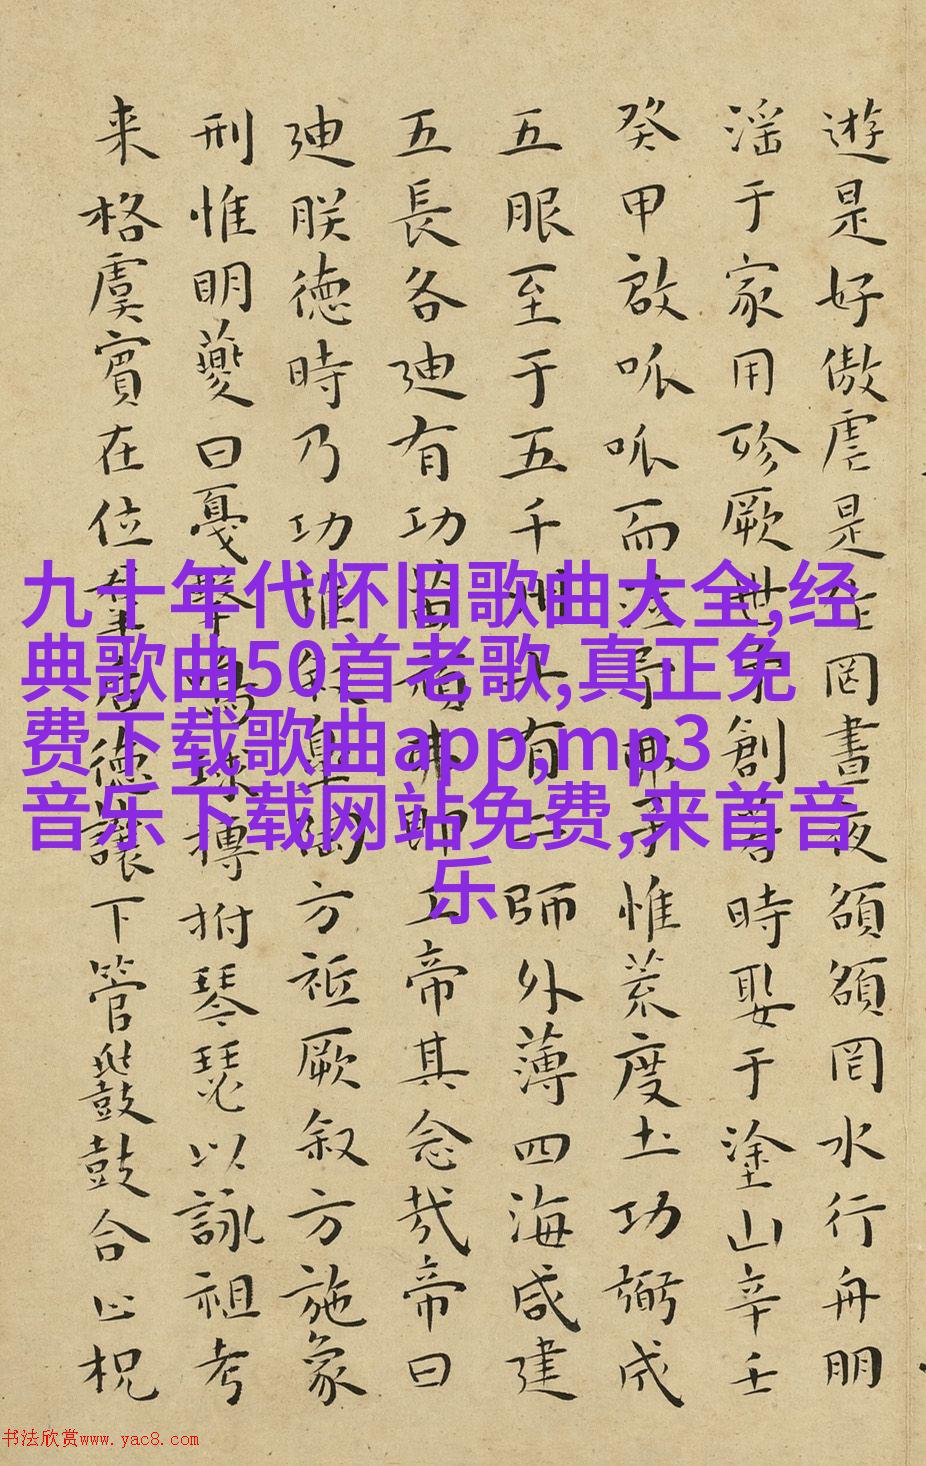 遊是好傲虐是作罔晝夜頟頟罔水行舟朋
淫于家用殄厥世予創若時娶于塗山辛壬
癸甲啟呱呱而泣予弗子惟荒度土功弼成
五服至于五千州十有二師外薄四海咸建
五長各迪有功苗頑弗即工帝其念哉帝曰
迪朕德時乃功惟叙皋陶方祗厥叙方施象
刑惟明夔曰戛擊鳴球搏拊琴瑟以詠祖考
来格虞賓在位羣后德讓下管鼗鼓合止柷
九十年代怀旧歌曲大全,经
典歌曲50首老歌,真正免
费下载歌曲app,mp3
音乐下载网站免费,来首音
乐
书法欣赏www.yac8.com